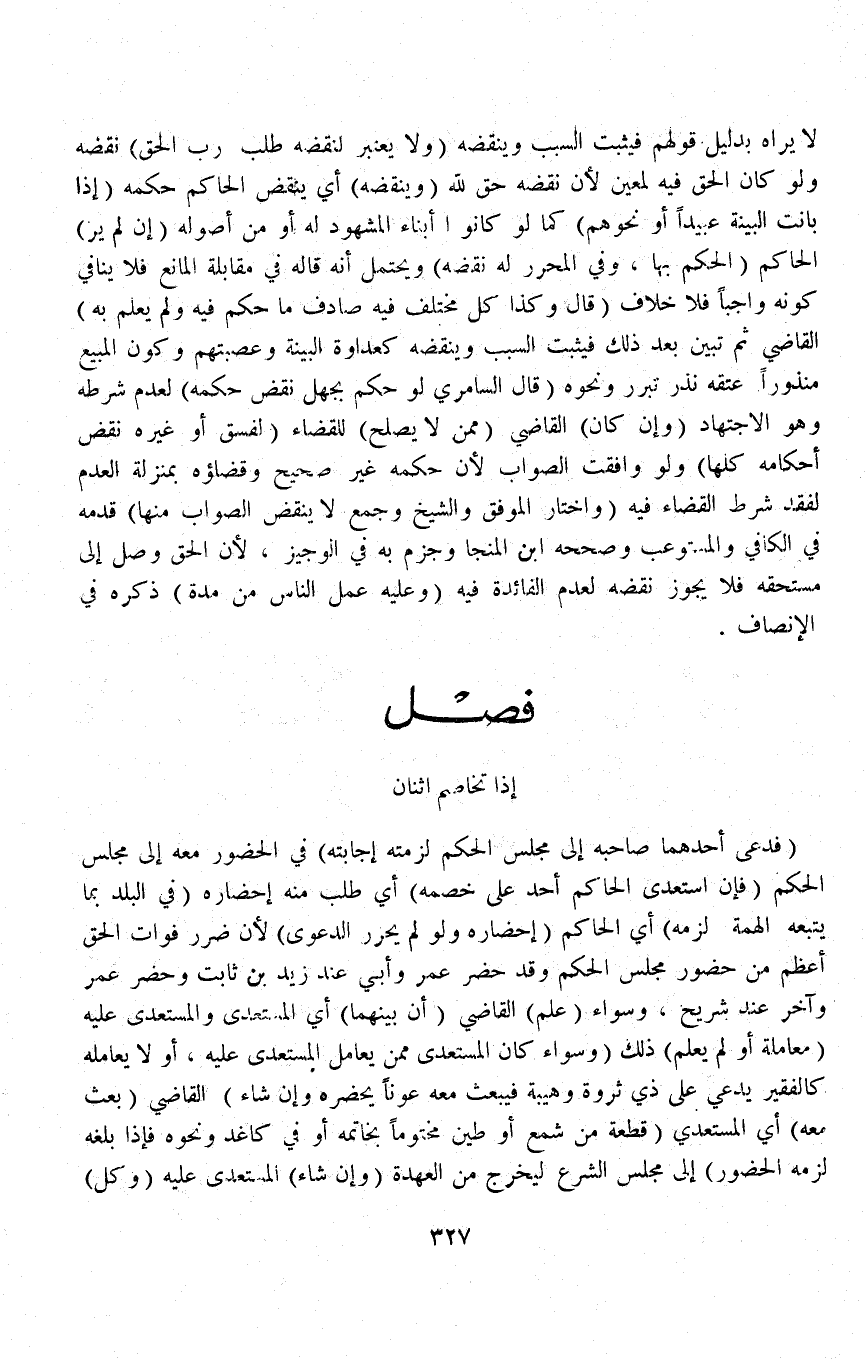 لا يراه بدليل قولهم فيثبت السبب وينقضه ( ولا يعتبر لنقضه طلب رب الحق) نقضه
ولو كان الحق فيه لمعين لأن نقضه حق لله ( وينقضه) أي ينقض الحاكم حكمه ( إذا
بانت البينة عبيداً أو نحوهم) كما لو كانو ا أبناء المشهود له أو من أصوله ( إن لم ير)
الحاكم ( الحكم بها ، وفي المحرر له نقضه) ويحتمل أنه قاله في مقابلة المانع فلا ينافي
كونه واجباً فلا خلاف ( قال وكذا كل مختلف فيه صادف ما حكم فيه ولم يعلم به )
القاضي ثم تبين بعد ذلك فيثبت السبب وينقضه كعداوة البينة وعصبتهم وكون المبيع
منذوراً عتقه نذر تبرر ونحوه ( قال السامري لو حكم بجهل نقض حكمه) لعدم شرطه
وهو الاجتهاد ( وإن كان) القاضي ( ممن لا يصلح) للقضاء ( لفسق أو غيره نقض
أحكامه كلها) ولو وافقت الصواب لأن حكمه غير صحيح وقضاؤه بمنزلة العدم
لفقد شرط القضاء فيه ( واختار الموفق والشيخ وجمع لا ينقض الصواب منها) قدمه
في الكافي والمستوعب وصححه ابن المنجا وجزم به في الوجيز ، لأن الحق وصل إلى
مستحقه فلا يجوز نقضه لعدم الفائدة فيه ( وعليه عمل الناس من مدة ) ذكره في
الإنصاف .
فصل
إذا تخاصم اثنان
( فدعى أحدهما صاحبه إلى مجلس الحكم لزمته إجابته) في الحضور معه إلى مجلس
الحكم ( فإن استعدى الحاكم أحد على خصمه) أي طلب منه إحضاره ( في البلد بما
يتبعه الهمة لزمه) أي الحاكم ( إحضاره ولو لم يحرر الدعوى) لأن ضرر فوات الحق
أعظم من حضور مجلس الحكم وقد حضر عمر وأبي عند زيد بن ثابت وحضر عمر
وآخر عند شريح ، وسواء ( علم) القاضي ( أن بينهما) أي المستعدى والمستعدى عليه
( معاملة أو لم يعلم) ذلك ( وسواء كان المستعدى ممن يعامل المستعدى عليه ، أو لا يعامله
كالفقير يدعي على ذي ثروة وهيبة فيبعث معه عوناً يحضره وإن شاء ) القاضي ( بعث
معه) أي المستعدي ( قطعة من شمع أو طين مختوماً بخاتمه أو في كاغد ونحوه فإذا بلغه
لزمه الحضور) إلى مجلس الشرع ليخرج من العهدة ( وإن شاء) المستعدى عليه ( وكل)
٣٢٧